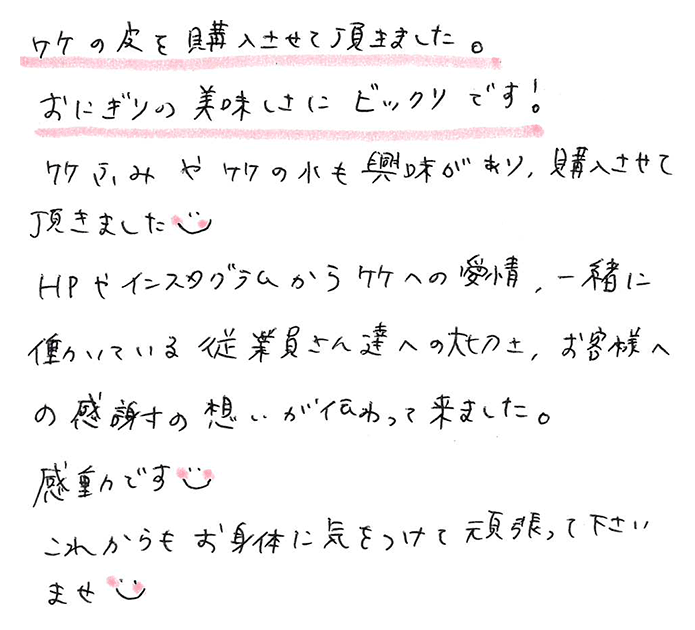 ケケの皮を購入させて頂きました。
おにぎりの美味しさにビックリです!
ケケふみやケケの水も興味があり、購入させて
頂きました
HPやインスタグラムからケケへの愛情、一緒に
働いている従業員さん達への大切さ、お客様へ
の感謝の想いが伝わって来ました。
感動です
これからもお身体に気をつけて頑張って下さい
ませ